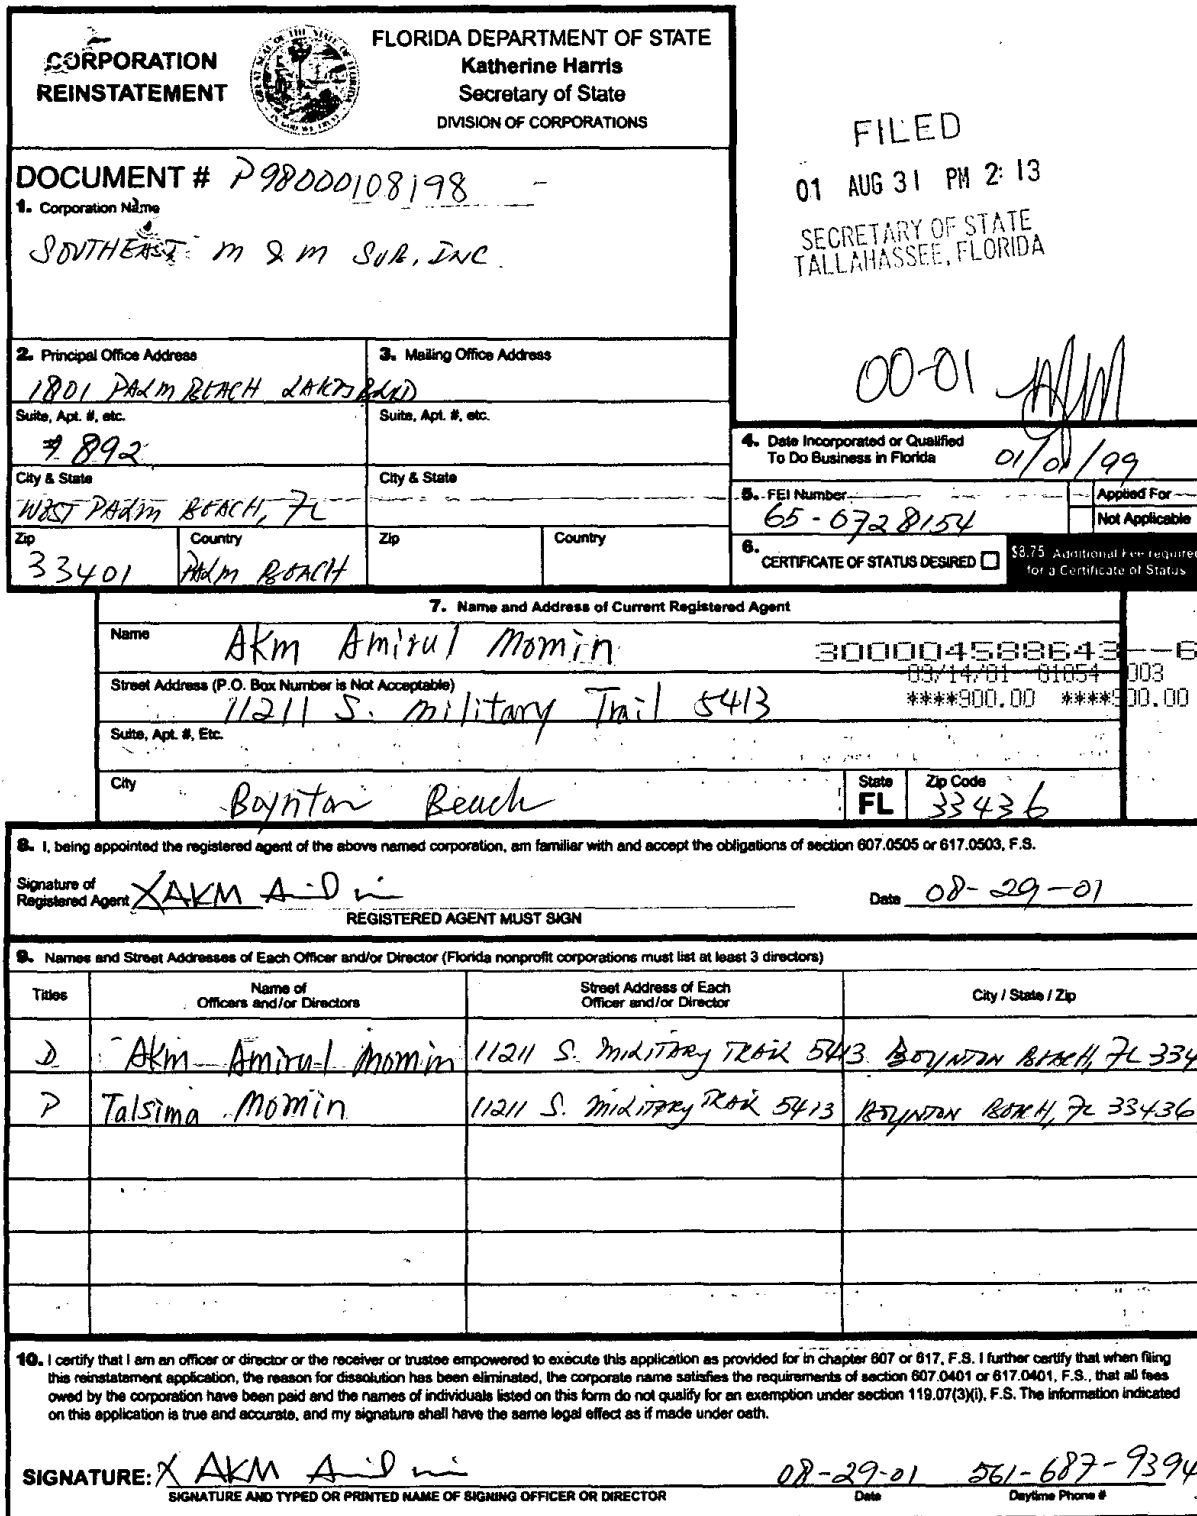 CORPORATION
REINSTATEMENT
FLORIDA DEPARTMENT OF STATE
Katherine Harris
Secretary of State
DIVISION OF CORPORATIONS
FILED
01 AUG 31 PM 2:13
SECRETARY OF STATE
TALLAHASSEE, FLORIDA
DOCUMENT # P98000108198
1. Corporation Name
SOUTHEAST M & M SUB, INC.
2. Principal Office Address
3. Mailing Office Address
1801 PALM BEACH LAKES BLVD
00-01
Suite, Apt. #, etc.
Suite, Apt. #, etc.
# 892
4. Date Incorporated or Qualified
To Do Business in Florida
01/01/99
City & State
City & State
WEST PALM BEACH, FL
5. FEI Number
65-0728154
Applied For
Not Applicable
Zip
Country
Zip
Country
33401
PALM BEACH
6. CERTIFICATE OF STATUS DESIRED
$8.75 Additional Fee required
for a Certificate of Status
7. Name and Address of Current Registered Agent
Name
AKm Amirul Momin
300004588643--6
Street Address (P.O. Box Number is Not Acceptable)
11211 S. military Trail 5413
09/14/01--01054--003
****900.00 ****900.00
Suite, Apt. #, Etc.
City
Boynton Beach
State
FL
Zip Code
33436
8. I, being appointed the registered agent of the above named corporation, am familiar with and accept the obligations of section 607.0505 or 617.0503, F.S.
Signature of
Registered Agent X AKM
Date 08-29-01
REGISTERED AGENT MUST SIGN
9. Names and Street Addresses of Each Officer and/or Director (Florida nonprofit corporations must list at least 3 directors)
Titles
Name of
Officers and/or Directors
Street Address of Each
Officer and/or Director
City / State / Zip
D AKm Amirul Momin 11211 S. MILITARY TRAIL 5413 BOYNTON BEACH, FL 334
P Talsima Momin 11211 S. MILITARY TRAIL 5413 BOYNTON BEACH, FL 33436
10. I certify that I am an officer or director or the receiver or trustee empowered to execute this application as provided for in chapter 607 or 617, F.S. I further certify that when filing
this reinstatement application, the reason for dissolution has been eliminated, the corporate name satisfies the requirements of section 607.0401 or 617.0401, F.S., that all fees
owed by the corporation have been paid and the names of individuals listed on this form do not qualify for an exemption under section 119.07(3)(i), F.S. The information indicated
on this application is true and accurate, and my signature shall have the same legal effect as if made under oath.
SIGNATURE: X AKM
08-29-01 561-687-9394
SIGNATURE AND TYPED OR PRINTED NAME OF SIGNING OFFICER OR DIRECTOR
Date
Daytime Phone #